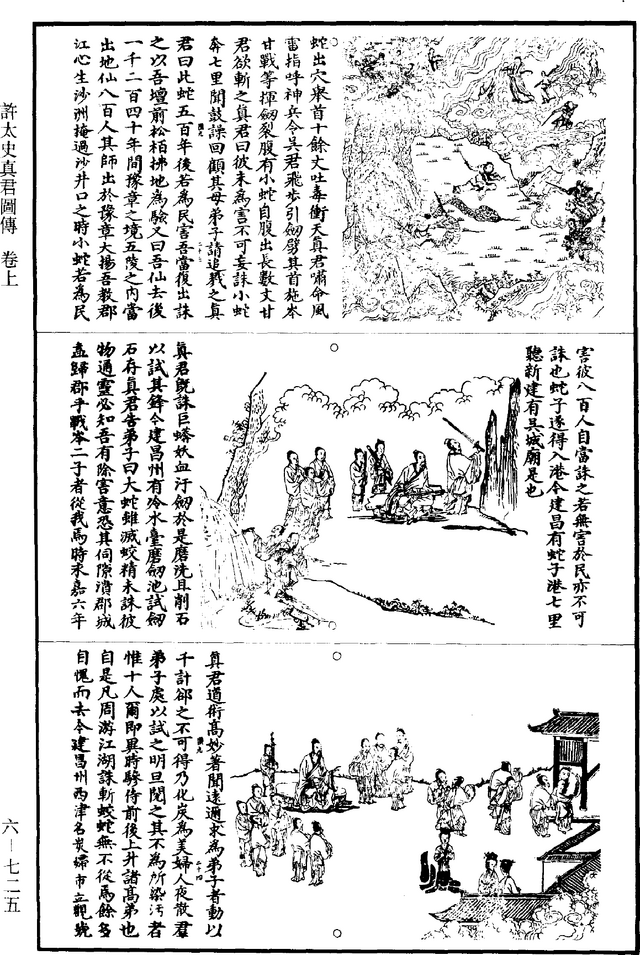 許太史真君圖傳 卷上
蛇出穴舉首十餘丈吐毒衝天真君嘯命風
雷指呼神兵令吳君飛步引劒劈其首施岑
甘戰等揮劒裂腹有小蛇自腹出長數丈甘
君欲斬之真君曰彼未為害不可妄誅小蛇
奔七里聞鼓譟回顧其母弟子請追戮之真
君曰此蛇五百年後若為民害吾當復出誅
之以吾壇前松栢拂地為驗又曰吾仙去後
一千二百四十年間豫章之境五陵之內當
出地仙八百人其師出於豫章大揚吾教郡
江心生沙洲掩過沙井口之時小蛇若為民
害彼八百人自當誅之若無害於民亦不可
誅也蛇子遂得入港今建昌有蛇子港七里
聽新建有具城廟是也
真君既誅巨蟒妖血汙劒於是磨洗且削石
以試其鋒今建昌州有冷水臺磨劒池試劒
石存真君告弟子曰大蛇雖滅蛟精未誅彼
物通靈必知吾有除害意恐其伺隙潰郡城
盍歸郡乎戰岑二子者從我焉時永嘉六年
真君道術高妙著聞遠邇求為弟子者動以
千計郤之不可得乃化炭為美婦人夜散羣
弟子處以試之明旦閱之其不為所染汚者
惟十人爾即異時驂侍前後上升諸高弟也
自是凡周游江湖誅斬蛟蛇無不從焉餘多
自愧而去今建昌州西津名炭婦市立觀號
六－七二五